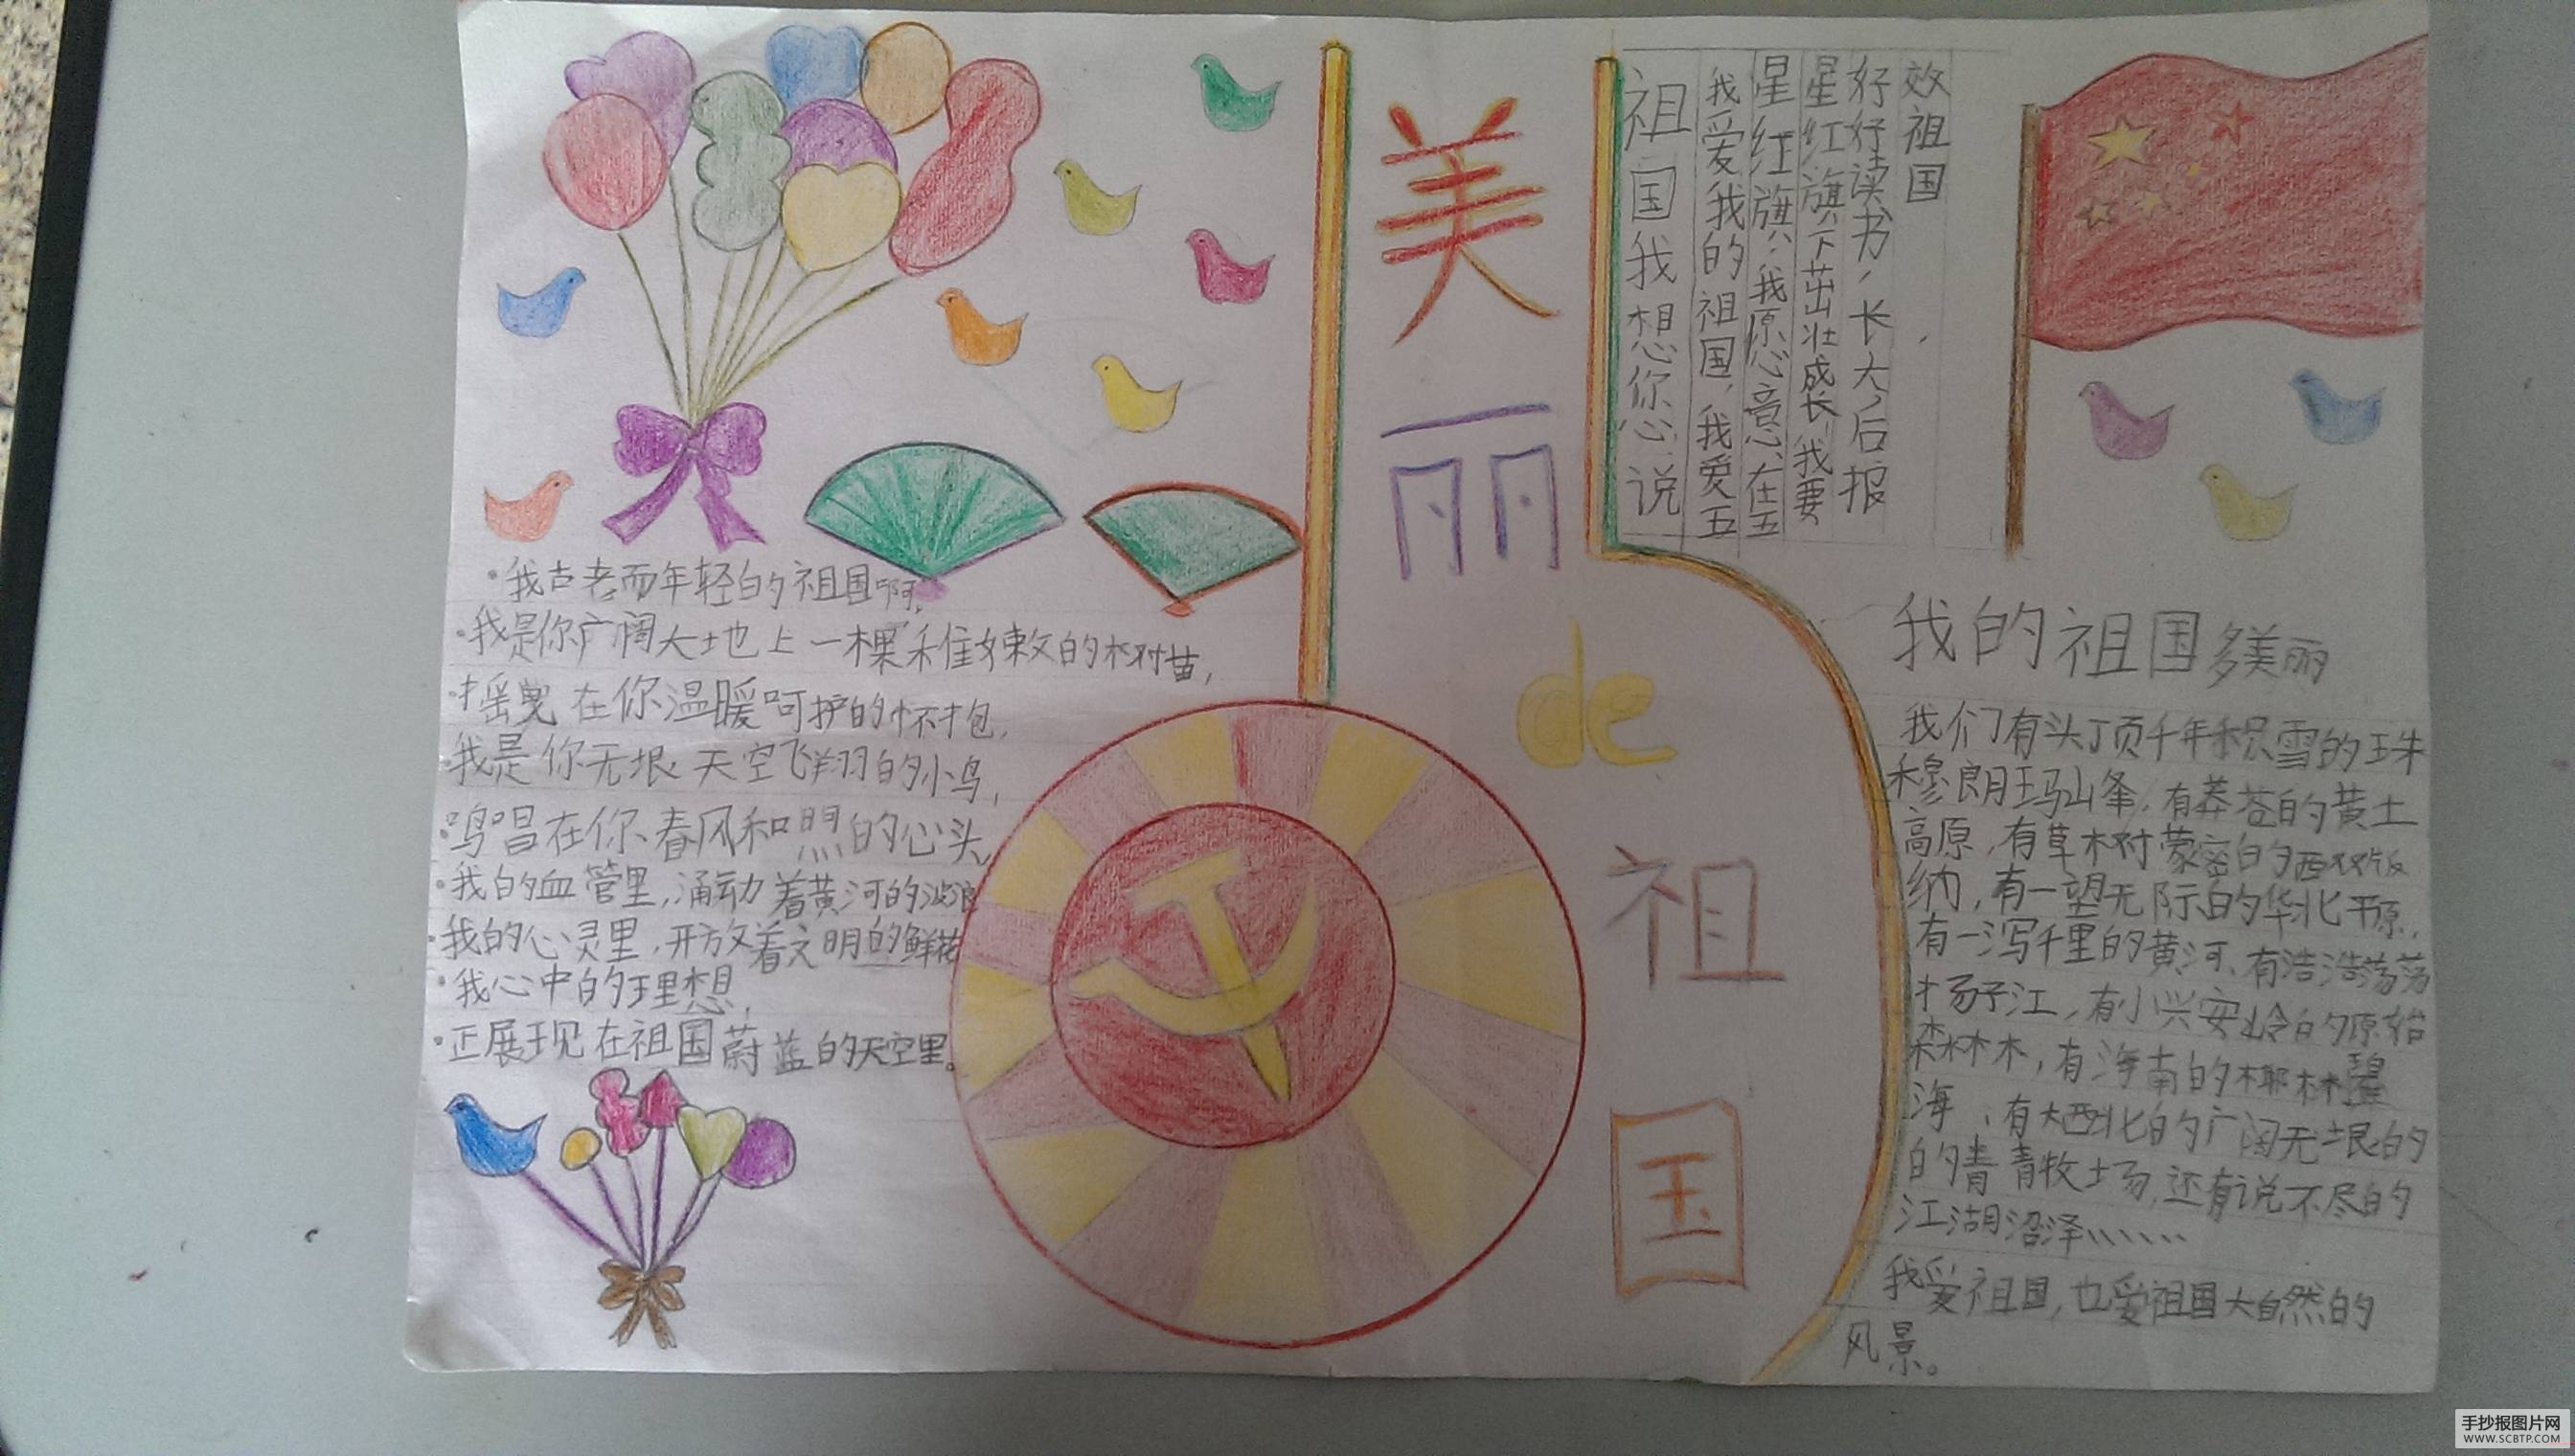 美
丽
de
祖
国
祖国我想你心说
我爱我的祖国,我爱五
星红旗,我愿意,在五
星红旗下茁壮成长,我要
好好读书,长大后报
效祖国
我古老而年轻的祖国啊,
我是你广阔大地上一棵稚嫩的树苗,
摇曳在你温暖呵护的怀抱,
我是你无垠天空飞翔的小鸟,
鸣唱在你春风和煦的心头,
我的血管里,涌动着黄河的波浪
我的心灵里,开放着文明的鲜花
我心中的理想,
正展现在祖国蔚蓝的天空里。
我的祖国多美丽
我们有头顶千年积雪的珠
穆朗玛山峰,有莽苍的黄土
高原,有草树蒙密的西双版
纳,有一望无际的华北平原,
有一泻千里的黄河、有浩浩荡荡
扬子江,有小兴安岭的原始
森林木,有海南的椰林碧
海、有大西北的广阔无垠的
的青青牧场,还有说不尽的
江湖沼泽……
我爱祖国,也爱祖国大自然的
风景。
手抄报图片网
WWW.SCBTP.COM